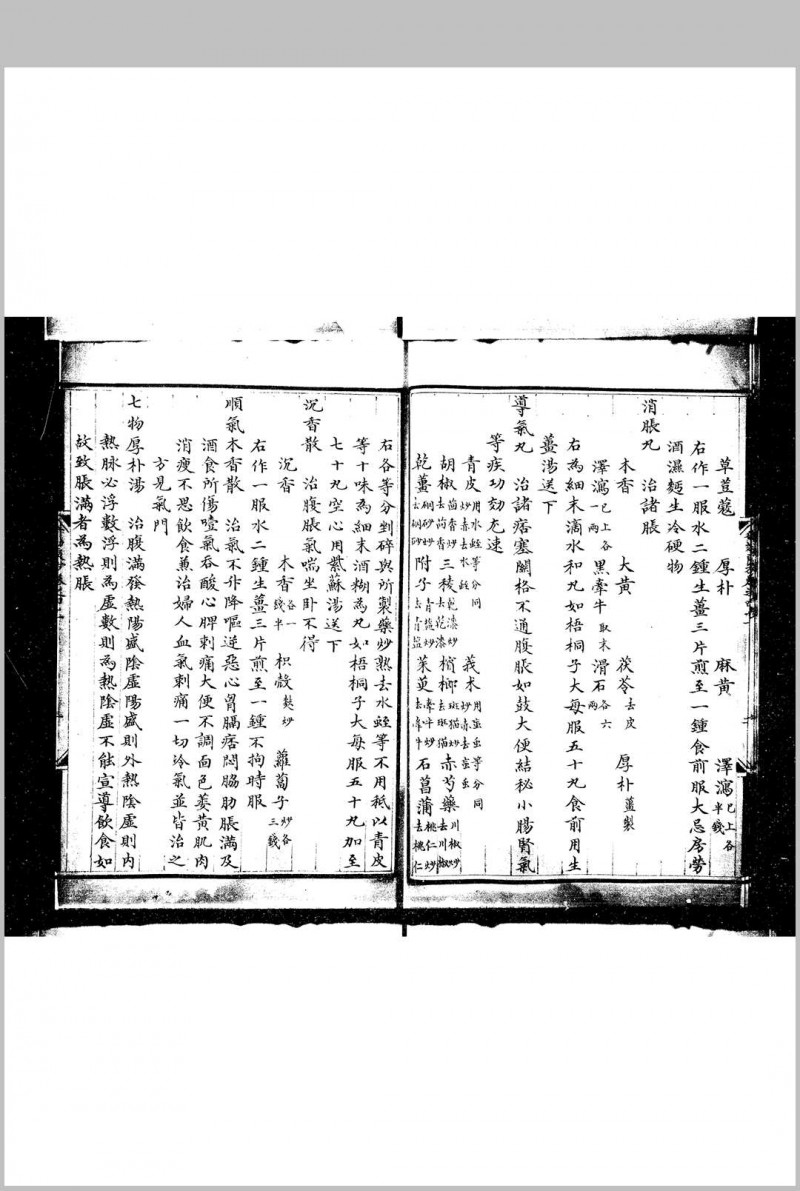 草荳蔻　厚朴　麻黄　澤瀉已上各半錢
右作一服水二鍾生薑三片煎至一鍾食前服大忌房勞
酒濕麵生冷硬物
消脹丸　治諸脹
木香　大黄　茯苓去皮　厚朴薑製
澤瀉已上各一兩　黑牽牛取末　滑石各六兩
右為細末滴水和丸如梧桐子大每服五十丸食前用生
薑湯送下
導氣丸　治諸痞塞關格不通腹脹如鼓大便結秘小腸腎氣
等疾功効尤速
青皮用水蛭等分同炒赤去水蛭　莪朮用虻虫等分同炒赤去虻虫
胡椒茴香炒去茴香　三稜乾漆炒去乾漆　檳榔斑猫炒去斑猫　赤芍藥川椒炒去川椒
乾薑硇砂炒去硇砂　附子青塩炒去青塩　茱萸牽牛炒去牽牛　石菖蒲桃仁炒去桃仁
右各等分剉碎與所製藥炒熟去水蛭等不用秪以青皮
等十味為細末酒糊為丸如梧桐子大每服五十丸加至
七十丸空心用紫蘇湯送下
沉香散　治腹脹氣喘坐卧不得
沉香　木香各一錢半　枳殼麩炒　蘿蔔子炒各三錢
右作一服水二鍾生薑三片煎至一鍾不拘時服
順氣木香散　治氣不升降嘔逆惡心胷膈痞悶脇肋脹滿及
酒食所傷噎氣吞酸心脾刺痛大便不調面色萎黄肌肉
消瘦不思飲食兼治婦人血氣刺痛一切冷氣並皆治之
方見氣門
七物厚朴湯　治腹滿發熱陽盛陰虛陽盛則外熱陰虛則内
熱脉必浮數浮則為虛數則為熱陰虛不能宣導飲食如
故致脹滿者為熱脹